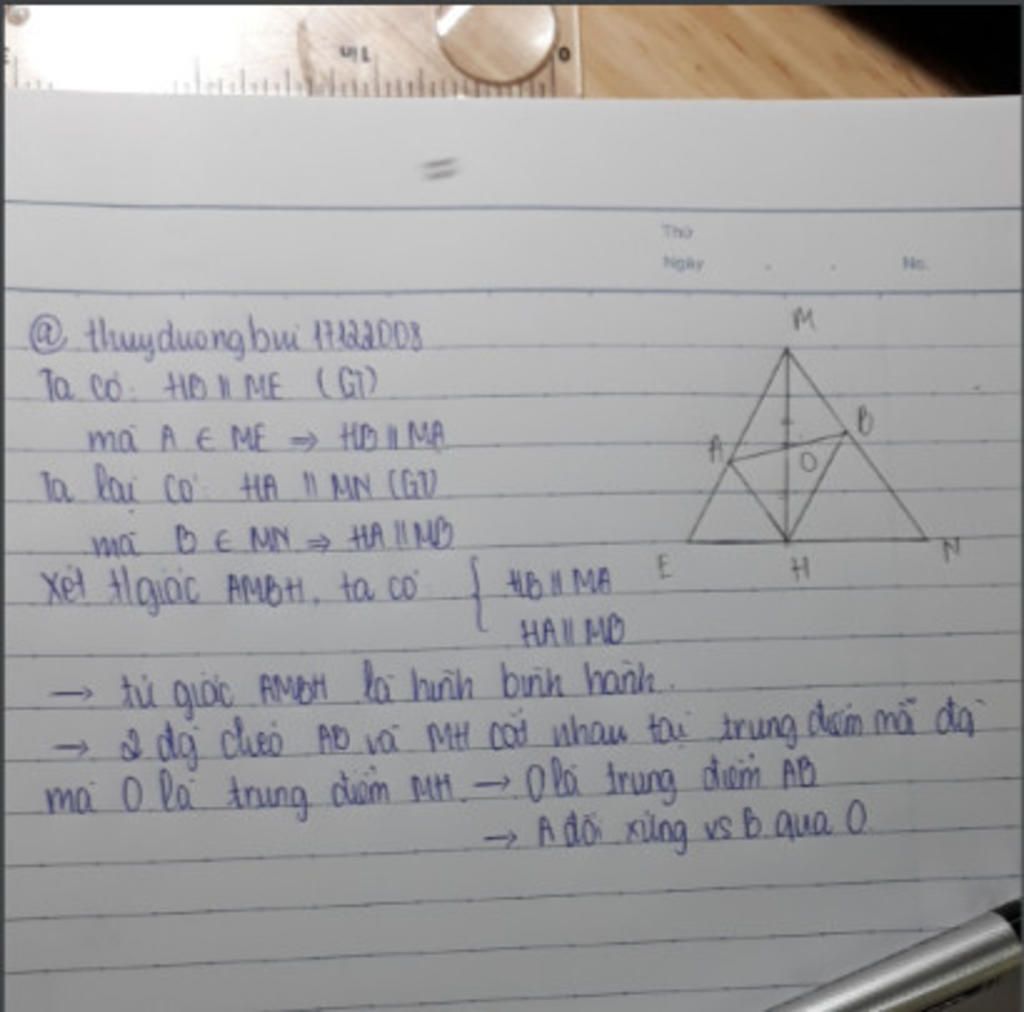 1in
0
=
Thứ
Ngày . . No.
@ thuyduongbui 17122003
Ta có: HB || ME (GT)
mà A ∈ ME ⇒ HB || MA
Ta lại có: HA || MN (GT)
mà B ∈ MN ⇒ HA || MB
Xét t/giác AMBH, ta có { HB || MA
HA || MB
→ tứ giác AMBH là hình bình hành.
→ 2 đg chéo AB và MH cắt nhau tại trung điểm mỗi đg
mà O là trung điểm MH → O là trung điểm AB
→ A đối xứng vs B qua O
M
A
B
O
E
H
N